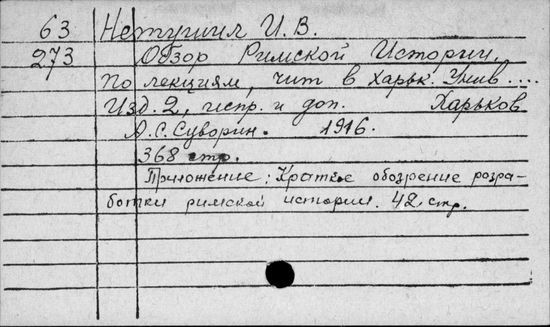 63 Нетушил И. В.
273 Обзор Римской Истории.
По лекциям, чит в Харьк. Унив....
Изд. 2, испр. и доп. Харьков
А.С. Суворин. 1916.
368 стр.
Приложение: Краткое обозрение разра-
ботки римской истории. 42 стр.